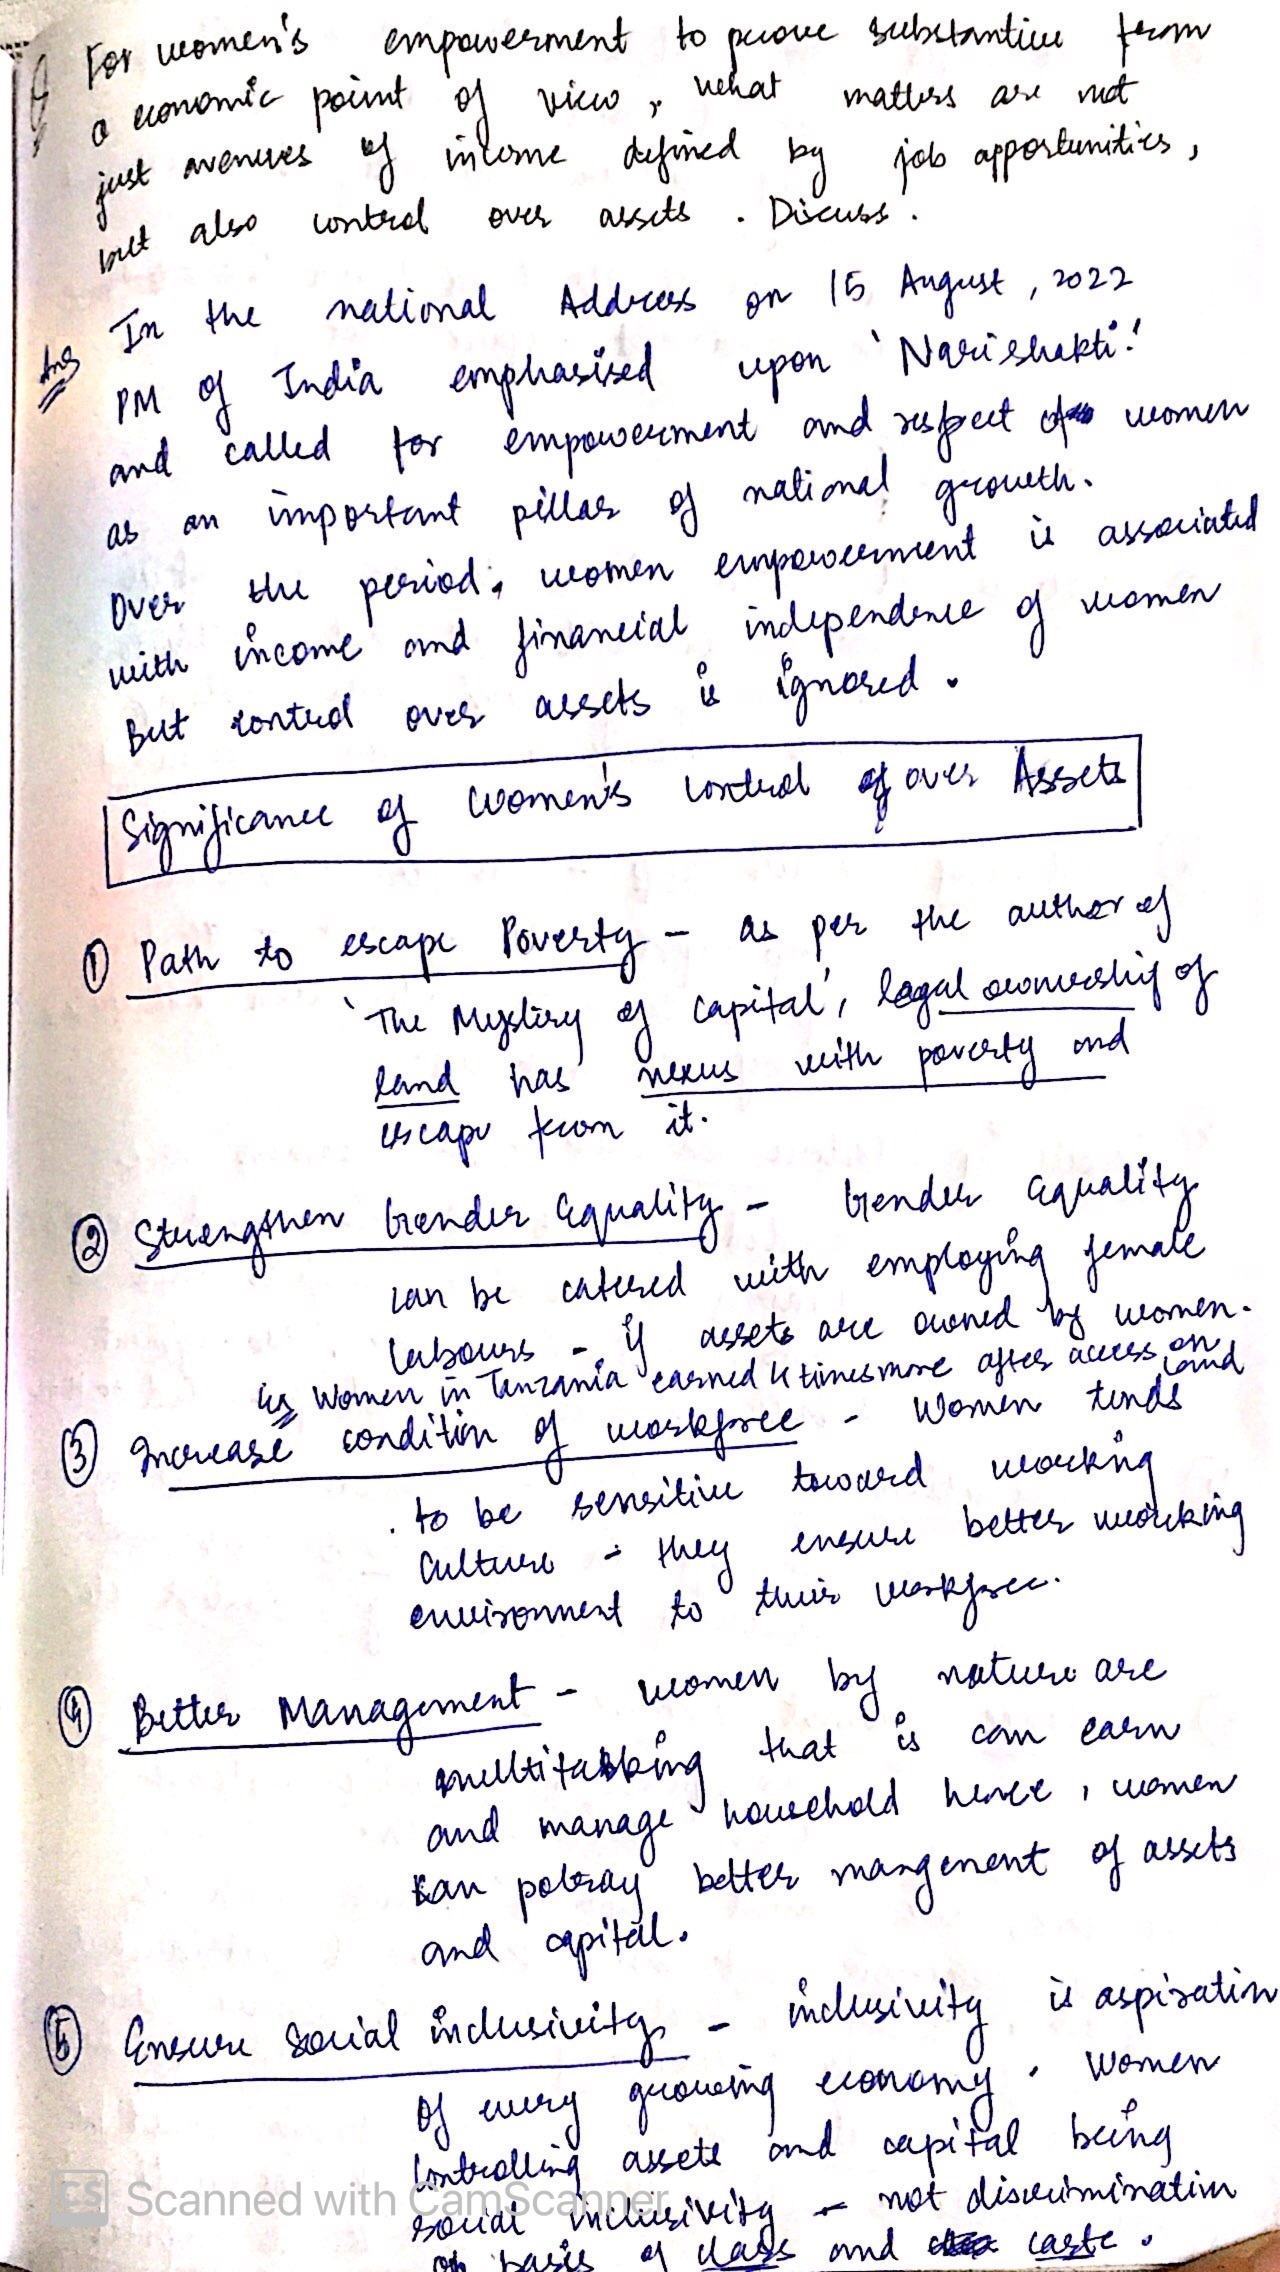 Q For women's empowerment to prove substantive from
a economic point of view, what matters are not
just avenues of income defined by job opportunities,
but also control over assets. Discuss.
Ans In the national Address on 15 August, 2022
PM of India emphasised upon 'Narishakti'
and called for empowerment and respect of women
as an important pillar of national growth.
Over the period, women empowerment is associated
with income and financial independence of women
But control over assets is ignored.
Significance of Women's control of over Assets
① Path to escape Poverty - as per the author of
'The Mystery of Capital', legal ownership of
land has nexus with poverty and
escape from it.
② Strengthen Gender Equality - Gender Equality
can be catered with employing female
labours - if assets are owned by women.
Eg Women in Tanzania earned 4 times more after access on land
③ Increase condition of workforce - Women tends
to be sensitive toward working
culture - they ensure better working
environment to their workforce.
④ Better Management - women by nature are
multitasking that is can earn
and manage household hence, women
can potray better mangement of assets
and capital.
⑤ Ensure Social inclusivity - inclusivity is aspiration
of every growing economy. Women
controlling assets and capital being
social inclusivity - not discrimination
on basis of class and caste.
CS Scanned with CamScanner